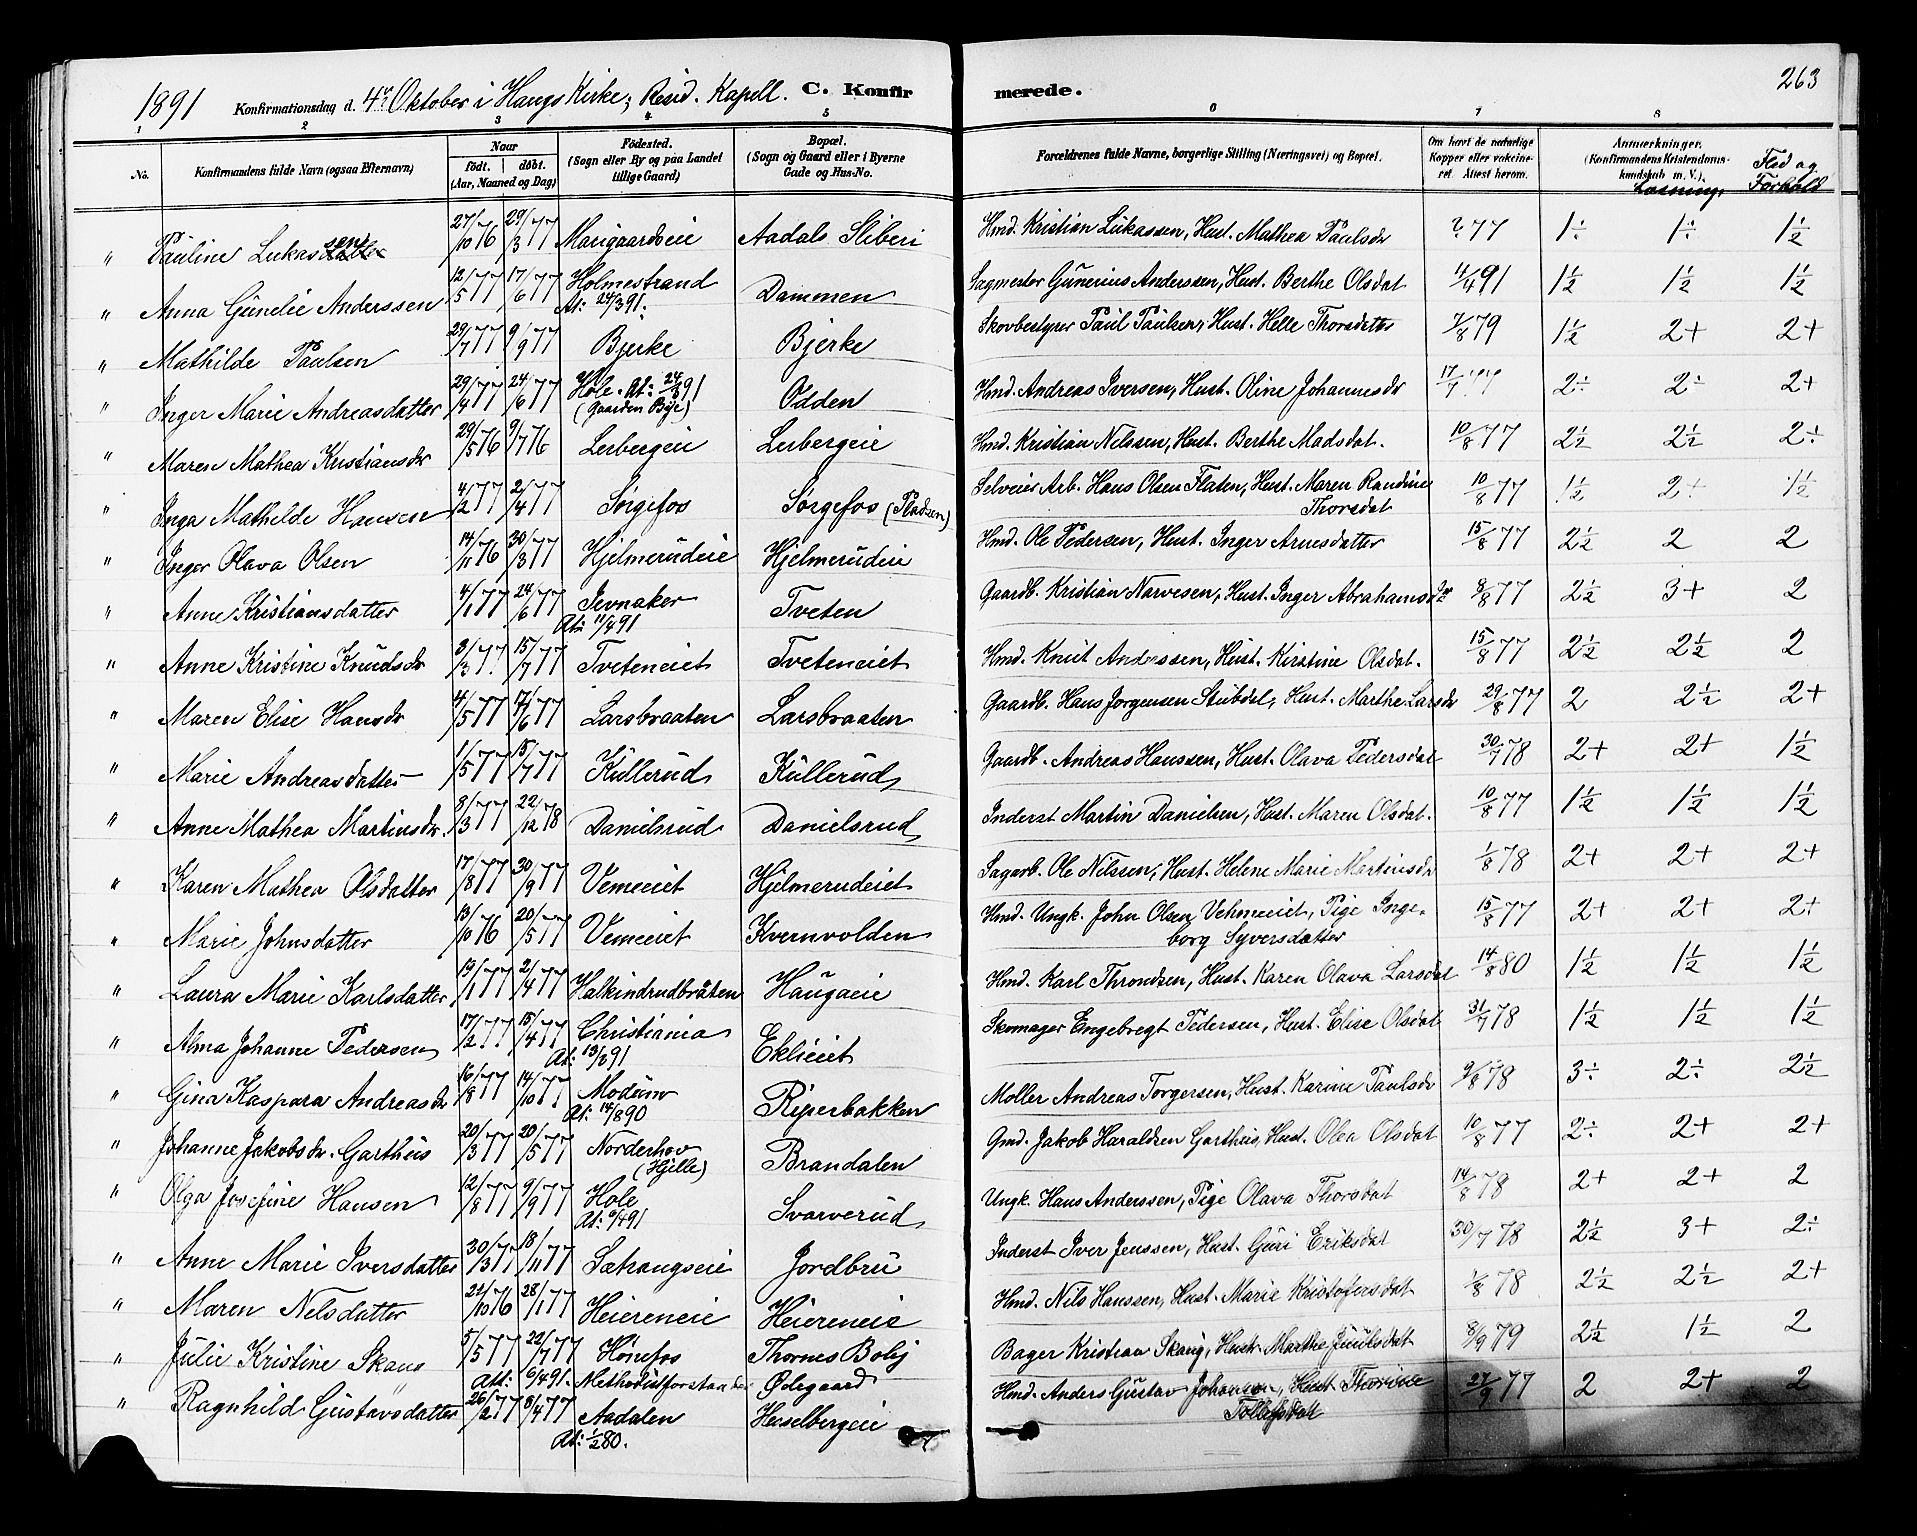 263
1891 Konfirmationsdag d. 4de Oktober i Haugs Kirke; Resid. Kapell. C. Konfirmerede.
1 2 3 4 5 6 7 8
No. Konfirmandens fulde Navn (ogsaa Efternavn) Naar født. døbt. (Aar, Maaned og Dag) Fødested. (Sogn eller By og paa Landet tillige Gaard) Bopæl. (Sogn og Gaard eller i Byerne Gade og Hus-No. Forældrenes fulde Navne, borgerlige Stilling (Næringsvei) og Bopæl. Om havt de naturlige Kopper eller vakcineret. Attest herom. Anmærkninger. (Konfirmandens Kristendomskundskab m. V.) Læsning. Flid og Forhold
" Pauline Lukassen 27/10 76 29/3 77 Marigaardseie Aadals Sliberi Hmd. Kristian Lukassen, Hust. Mathea Paulsdr ?77 1÷ 1÷ 1½
" Anna Gunelie Anderssen 12/5 77 17/6 77 Holmestrand Dammen Sagmester Gunerius Anderssen, Hust. Berthe Olsdat 4/4 91 1½ 1½ 1½
At: 24/3 91.
" Mathilde Paulsen 29/7 77 9/9 77 Bjerke Bjerke Skovbestyrer Paul Paulsen, Hust. Helle Thorsdatter 7/8 79 1½ 2+ 2+
" Inger Marie Andreasdatter 29/4 77 24/6 77 Hole. At: 24/3 91 Odden Hmd. Andreas Iversen, Hust. Oline Johannesdr 17/7 77 2÷ 2÷ 2+
(Gaarden Bye)
" Maren Mathea Kristiansdr 29/5 76 9/7 76 Lerbergeie Lerbergeie Hmd. Kristian Nilssen, Hust. Berthe Madsdat. 10/8 77 2½ 2½ 2÷
" Inga Mathilde Hansen 4/2 77 2/4 77 Sørgefos Sørgefos (Pladsen) Selveier Arb. Hans Olsen Flaten, Hust. Maren Randine 10/8 77 1½ 2+ 1½
Thorsdat
" Inger Olava Olsen 14/11 76 30/3 77 Hjelmerudeie Hjelmerudeie Hmd. Ole Pedersen, Hust. Inger Arnesdatter 15/8 77 2½ 2 2
" Anne Kristiansdatter 4/1 77 24/6 77 Jevnaker Tveten Gaardb. Kristian Narvesen, Hust. Inger Abrahamsdr 8/8 77 2½ 3+ 2
At: 11/4 91
" Anne Kristine Knudsdr 3/3 77. 15/7 77 Tveteneiet Tveteneiet Hmd. Knut Anderssen, Hust. Kirstine Olsdat. 15/8 77 2½ 2½ 2
" Maren Elise Hansdr 4/5 77 17/6 77 Larsbraaten Larsbraaten Gaardb. Hans Jorgensen Stubdal, Hust. Marthe Larsdr 29/8 77 2 2½ 2+
" Marie Andreasdatter 1/5 77 15/7 77 Kullerud Kullerud Gaardb. Andreas Hanssen, Hust. Olava Pedersdat 30/7 78 2+ 2+ 1½
" Anne Mathea Martinsdr. 8/3 77 22/12 78 Danielsrud Danielsrud Inderst Martin Danielsen, Hust. Maren Olsdat. 10/8 77 1½ 1½ 1½
" Karen Mathea Olsdatter 17/8 77 30/9 77 Vemeeiet Hjelmerudeiet Sagarb. Ole Nilssen, Hust. Helene Marie Martinsdr 1/8 78 2+ 2+ 2+
" Marie Johnsdatter 13/10 76 20/5 77 Vemeeiet Kvernvolden Hmd. Ungk. John Olsen Vehmeeiet, Pige Inge- 15/8 77 2+ 2+ 2+
borg Syversdatter
" Laura Marie Karlsdatter 19/1 77 2/4 77 Halkindrudbråten Haugaeie Hmd. Karl Throndsen, Hust. Karen Olava Larsdat 14/8 80 1½ 1½ 1½
" Alma Johanne Pedersen 17/2 77 15/4 77 Christiania Eklieiet Skomager Engebregt Pedersen, Hust. Elise Olsdat 31/7 78 1½ 1½ 1½
At: 13/8 91
" Gina Kaspara Andreasdr 16/8 77 14/10 77 Modum Ryperbakken Møller Andreas Torgersen, Hust. Karine Paulsdr 9/8 78 3÷ 2÷ 2½
At: 14/8 90
" Johanne Jakobsdr. Garthus 20/3 77 20/5 77 Norderhov Brandalen Gmd. Jakob Haraldsen Garthus, Hust. Olea Olsdat 10/8 77 2÷ 2+ 2+
(Hjelle)
" Olga Josefine Hansen 12/8 77 9/9 77 Hole Svarverud Ungk. Hans Anderssen, Pige Olava Thorsdat 14/8 78 2+ 2+ 2
At: 6/4 91
" Anne Marie Iversdatter 30/3 77 18/11 77 Sætrangseie Jordbru Inderst Iver Jenssen, Hust. Guri Eriksdat 30/7 78 2½ 3+ 2÷
" Maren Nelsdatter 22/10 76 28/1 77 Heiereneie Heiereneie Hmd. Nils Hanssen, Hust. Marie Kristofersdat 1/8 78 2½ 2½ 2+
" Julie Kristine Skaug 5/5 77 22/7 77 Hønefos Thornes Bolig Bager Kristian Skaug, Hust. Marthe Juulsdat 8/9 79 2½ 1½ 2
Att: 6/4 91. Methodistforstander Ødegaard
" Ragnhild Gustavsdatter 26/2 77 8/4 77 Aadalen Hesselbergeie Hmd. Anders Gustav Johanson, Hust. Thorine 27/9 77 2 2+ 2
At: 1/2 80. Tollefsdat